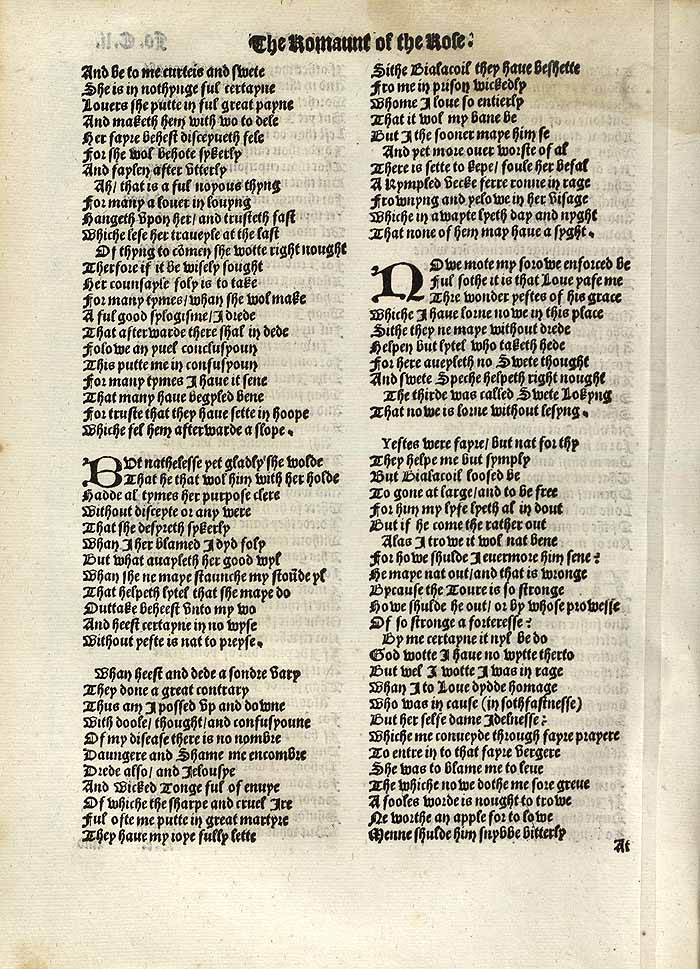 The Romaunt of the Rose:
And be to me curteis and swete
She is in nothynge ful certayne
Louers she putte in ful great payne
And maketh hem with wo to dele
Her fayre behest disceyueth fele
For she wol behote sykerly
And faylen after vtterly
Ah/ that is a ful noyous thyng
For many a louer in louyng
Hangeth vpon her/ and trusteth fast
Whiche lese her traueyle at the last
Of thyng to cōmen she wotte right nought
Therfore if it be wisely sought
Her counsayle foly is to take
For many tymes/ whan she wol make
A ful good sylogisme/ I drede
That afterwarde there shal in dede
Folowe an yuel conclusyoun
This putte me in confusyoun
For many tymes I haue it sene
That many haue begyled bene
For truste that they haue sette in hoope
Whiche fel hem afterwarde a slope.
BUt nathelesse yet gladly she wolde
That he that wol him with her holde
Hadde al tymes her purpose clere
Without disceyte or any were
That she desyreth sykerly
Whan I her blamed I dyd foly
But what auayleth her good wyl
Whan she ne maye staunche my stoūde yl
That helpeth lytel that she maye do
Outtake beheest vnto my wo
And heest certayne in no wyse
Without yefte is nat to preyse.
Whan heest and dede a sondre vary
They done a great contrary
Thus am I possed vp and downe
With doole/ thought/ and confusyoune
Of my disease there is no nombre
Daungere and Shame me encombre
Drede also/ and Jelousye
And Wicked Tonge ful of enuye
Of whiche the sharpe and cruel Ire
Ful ofte me putte in great martyre
They haue my ioye fully lette
Sithe Bialacoil they haue beshette
Fro me in prison wickedly
Whome I loue so entierly
That it wol my bane be
But I the sooner maye him se
And yet more ouer worste of al
There is sette to kepe/ foule her befal
A Rympled vecke ferre ronne in rage
Frownyng and yelowe in her visage
Whiche in awayte lyeth day and nyght
That none of hem may haue a syght.
NOwe mote my sorowe enforced be
Ful sothe it is that Loue yafe me
Thre wonder yeftes of his grace
Whiche I haue lorne nowe in this place
Sithe they ne maye without drede
Helpen but lytel who taketh hede
For here aueyleth no Swete thought
And swete Speche helpeth right nought
The thirde was called Swete Lokyng
That nowe is lorne without lesyng.
Yeftes were fayre/ but nat for thy
They helpe me but symply
But Bialacoil loosed be
To gone at large/ and to be free
For him my lyfe lyeth al in dout
But if he come the rather out
Alas I trowe it wol nat bene
For howe shulde I euermore him sene?
He maye nat out/ and that is wronge
Bycause the Toure is so stronge
Howe shulde he out/ or by whose prowesse
Of so stronge a forteresse?
By me certayne it nyl be do
God wotte I haue no wytte therto
But wel I wotte I was in rage
Whan I to Loue dydde homage
Who was in cause (in sothfastnesse)
But her selfe dame Idelnesse?
Whiche me conueyde through fayre prayere
To entre in to that fayre vergere
She was to blame me to leue
The whiche nowe dothe me sore greue
A fooles worde is nought to trowe
Ne worthe an apple for to lowe
Menne shulde him snybbe bitterly
At